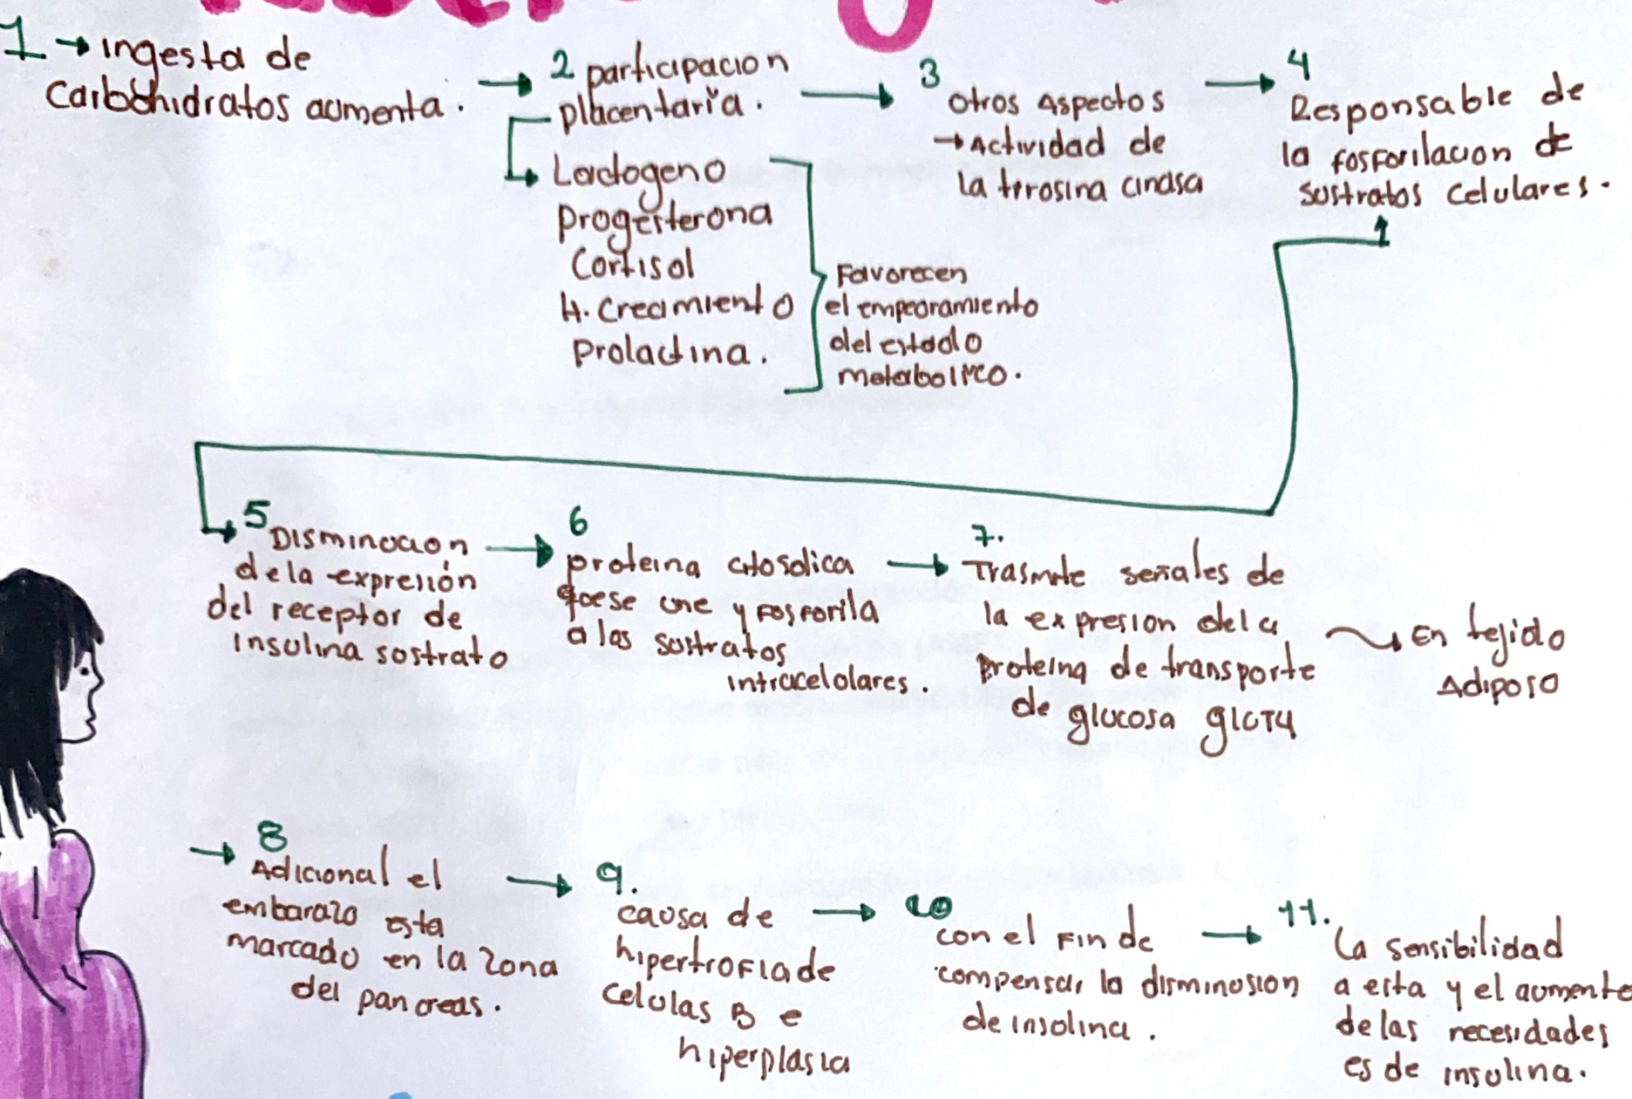 1 → ingesta de
Carbohidratos aumenta.
→ 2 participacion
placentaria.
Lactogeno
progesterona
Cortisol
H. Crecimiento
Prolactina.
Favorecen
el empeoramiento
del estado
metabolico.
→ 3
otros Aspectos
→ Actividad de
la tirosina cinasa
→ 4
Responsable de
la fosforilacion de
sustratos celulares.
5 Disminucion
de la expresión
del receptor de
insulina sostrato
→ 6
proteina citosolica
que se une y fosforila
a los sustratos
intracelulares.
→ 7.
Trasmite señales de
la expresion de la
proteina de transporte
de glucosa glUT4
En tejido
Adiposo
→ 8
Adicional el
embarazo esta
marcado en la zona
del pancreas.
→ 9.
causa de
hipertrofia de
celulas B e
hiperplasia
→ 10
con el fin de
compensar la disminusion
de insulina.
→ 11.
la sensibilidad
a esta y el aumento
de las necesidades
es de insulina.